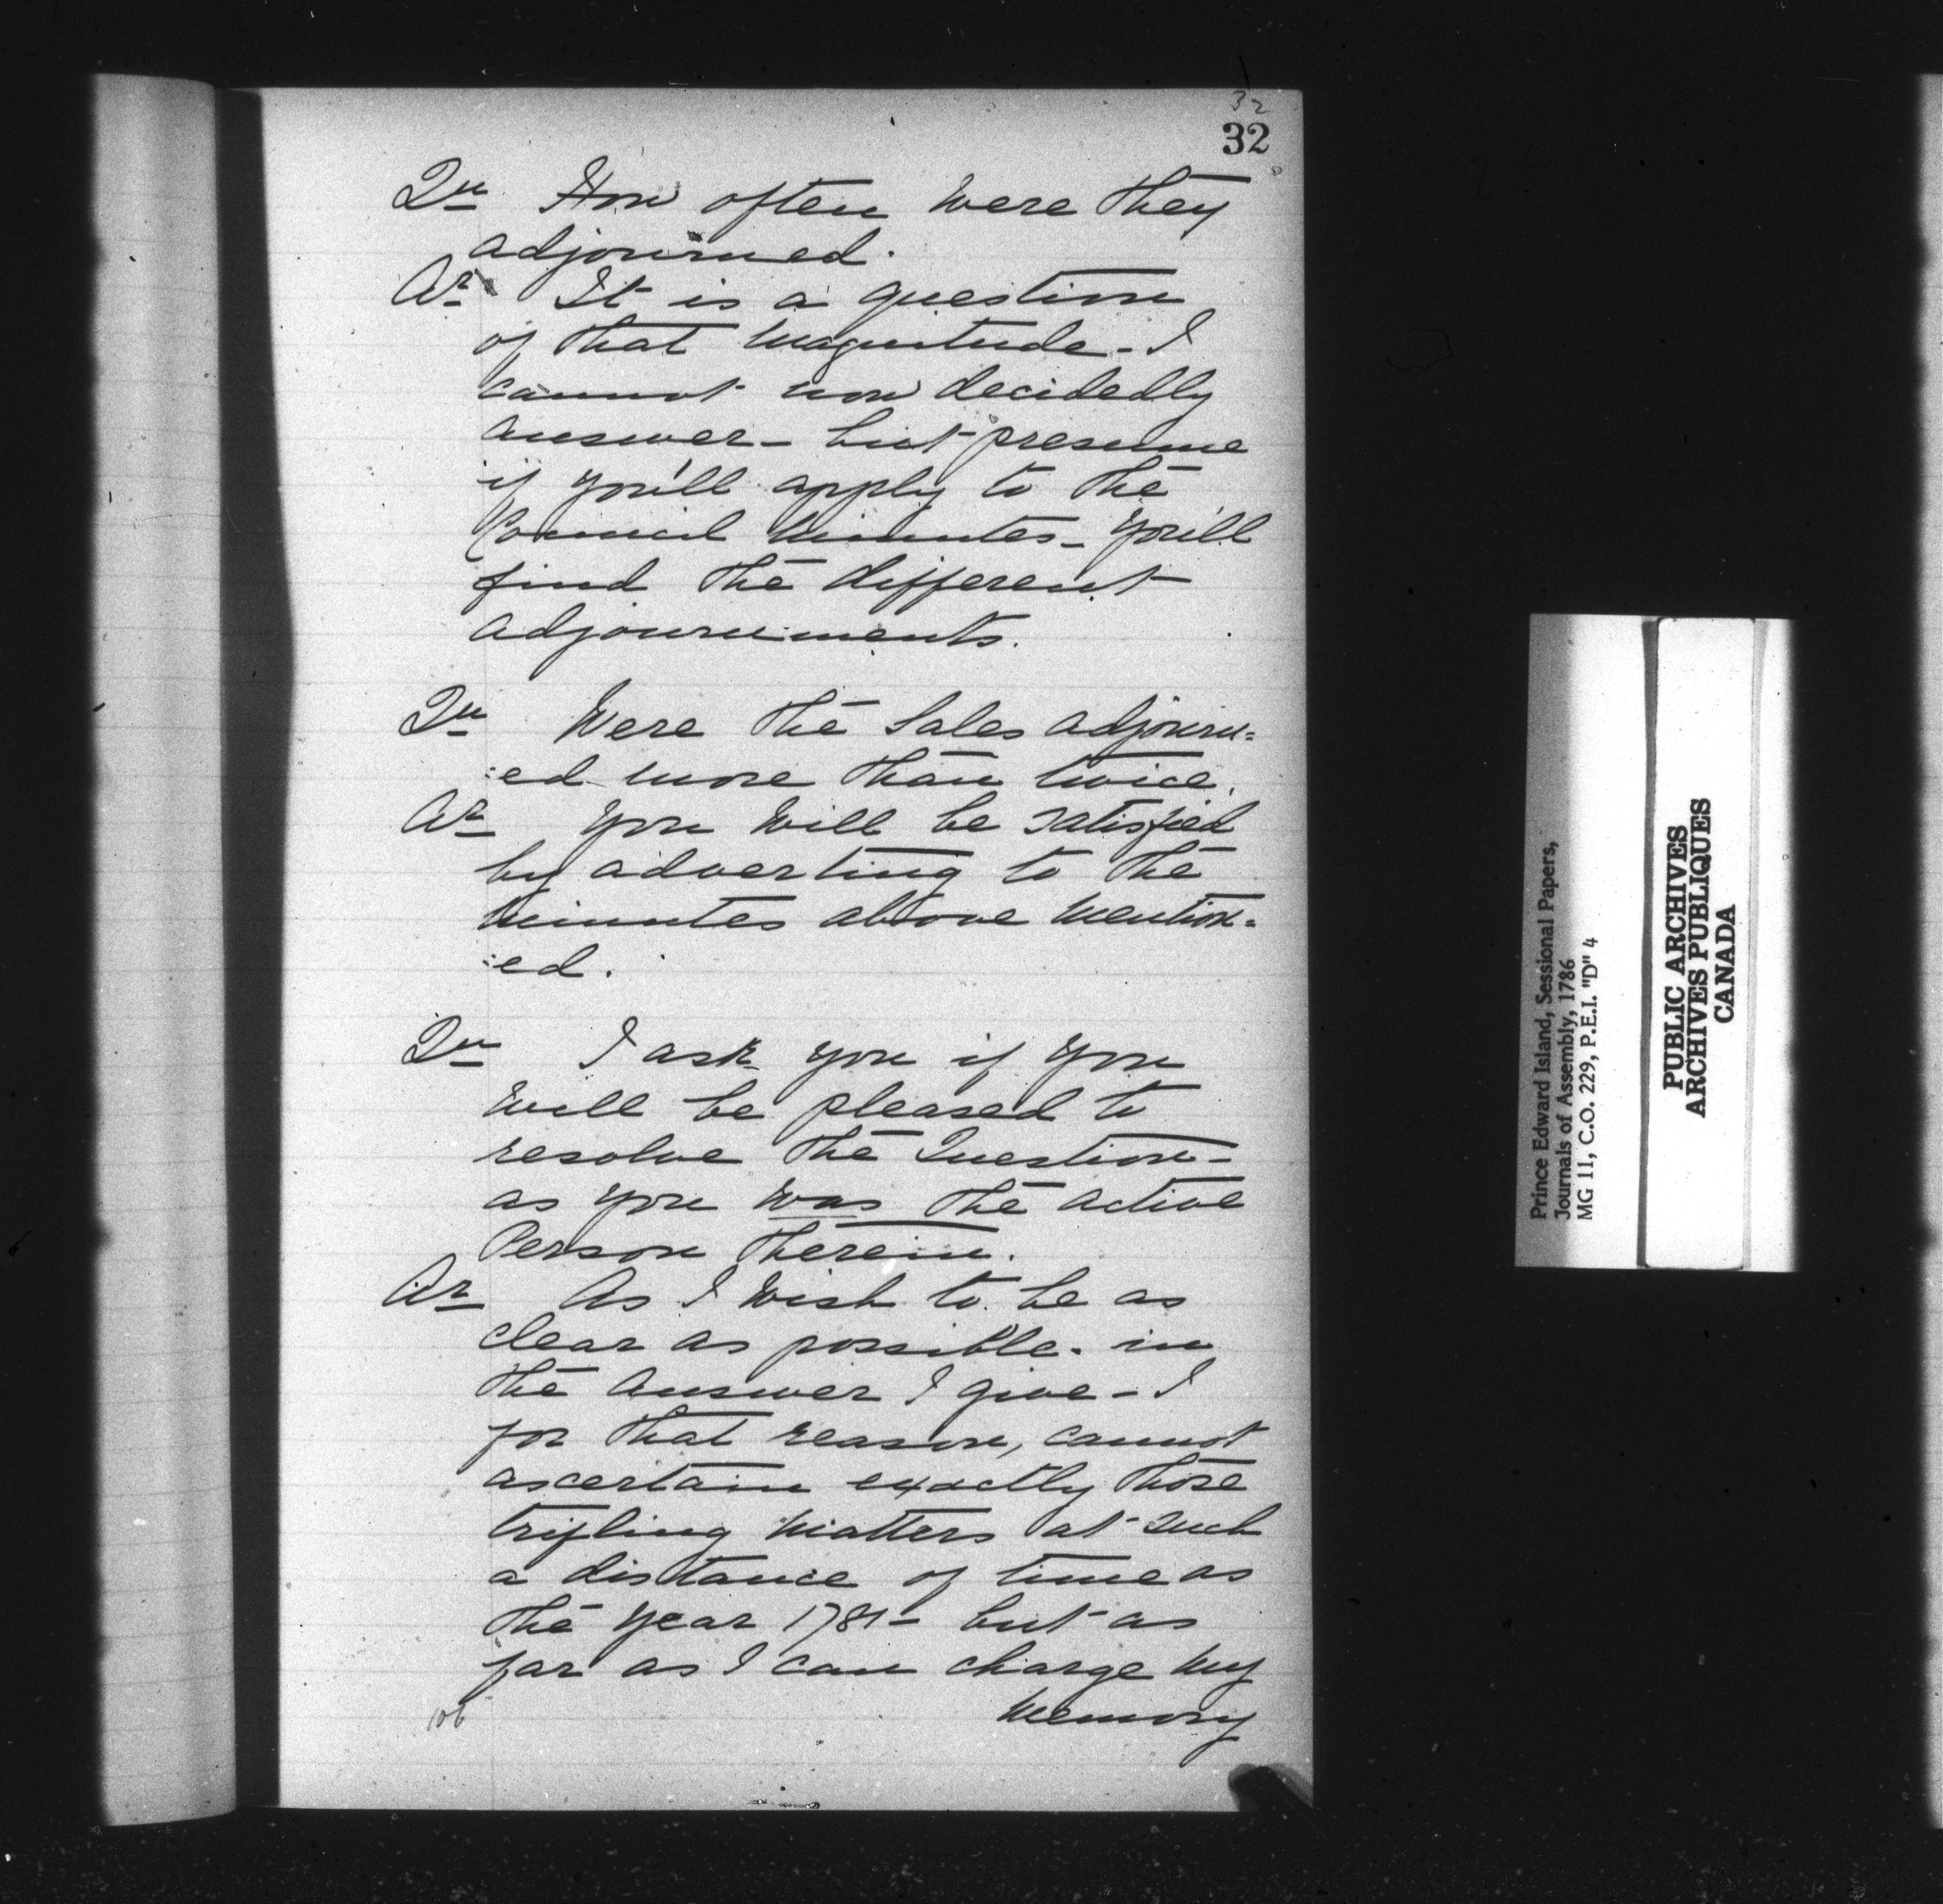 32
32
Qu How often were they
adjourned.
Ar It is a question
of that magnitude - I
cannot now decidedly
answer - but presume
if you'll apply to the
Council Minutes - you'll
find the different
adjournments.
Qu Were the Sales adjourn=
:ed more than twice.
Ar You will be satisfied
by adverting to the
Minutes above mention=
:ed.
Qu I ask you if you
will be pleased to
resolve the Question -
as you was the active
Person therein.
Ar As I wish to be as
clear as possible. in
the answer I give - I
for that reason, cannot
ascertain exactly those
trifling matters at such
a distance of time as
the year 1781 - but as
far as I can charge my
memory
Prince Edward Island, Sessional Papers,
Journals of Assembly, 1786
MG 11, C.O. 229, P.E.I. "D" 4
PUBLIC ARCHIVES
ARCHIVES PUBLIQUES
CANADA